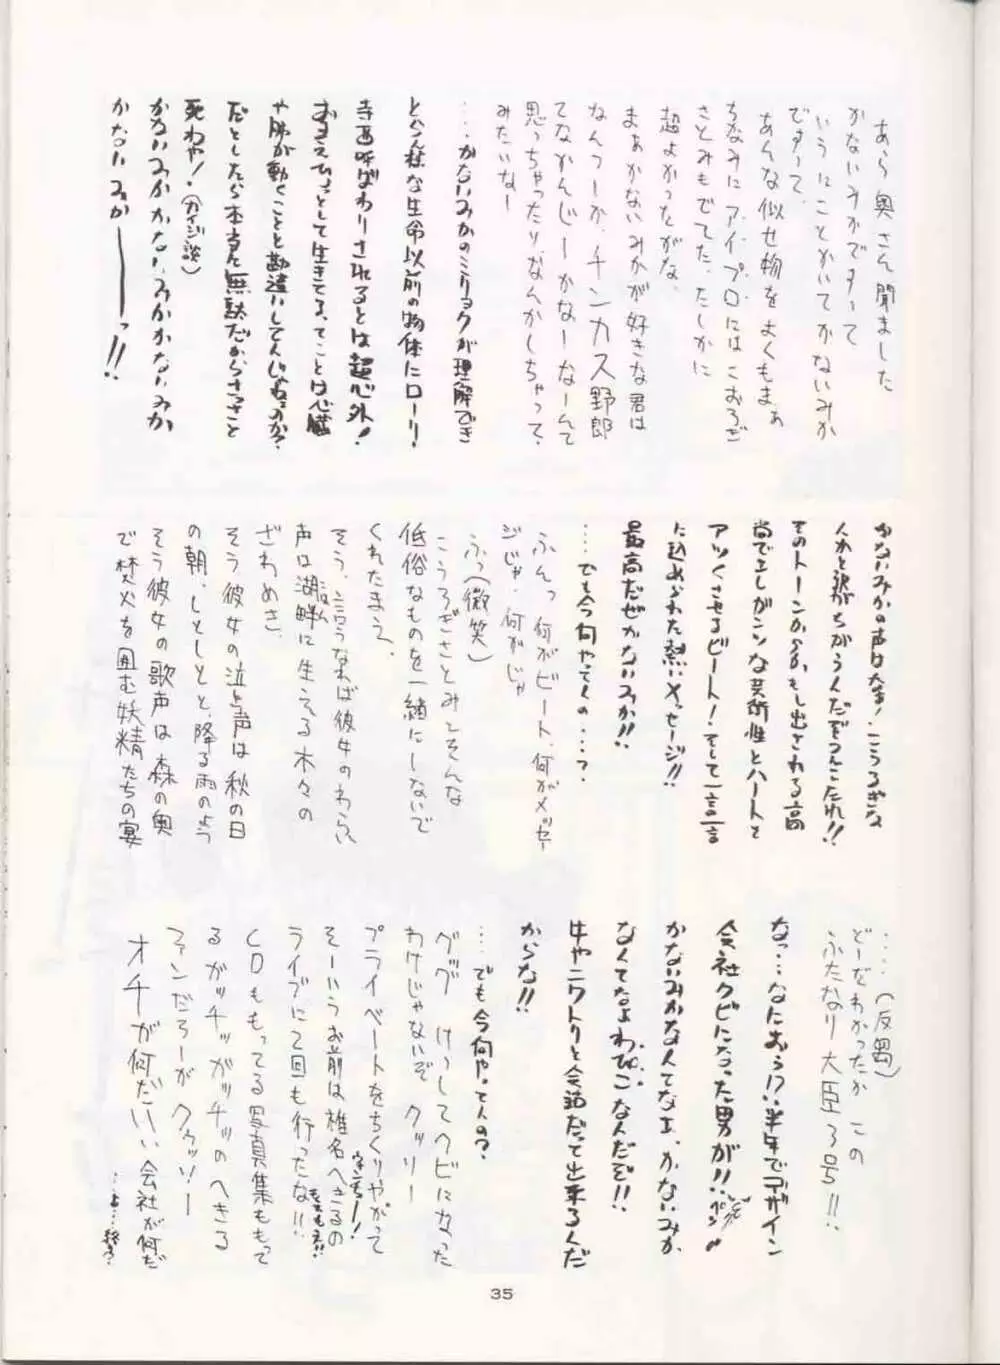 あら奥さん聞ました
かないみかですって
いうにことかいてかないみか
ですって、
あんな似せ物をよくもまぁ
ちなみにアイプロにはこおろぎ
さとみもでてた、たしかに
超よかったがな、
まぁかないみかが好きな君は
なんつーか、チンカス野郎
てなかんじーかなーなーんて
思っちゃったりなんかしちゃって、
みたいなー
……かないみかのミリョクが理解でき
とらん様な生命以前の物体にローリ!
寺西呼ばわりされるとは超心外!
おまえひょっとして生きてる、てことは心臓
や肺が動くことと勘違いしてんじゃねェのか?
だとしたら本当に無駄だからさっさと
死ねや!(カイジ談)
かないみかかないみかかないみか
かないみかーーーっ!!
かないみかの声は太金!こうろぎな
人かと訳がちがうんだぞうんこたれ!!
そのトーンからかもし出される高
尚でエレガンツな芸術性とハートを
アツくさせるビート!そして一言一言
に込められた熱いメッセージ!!
最高だぜかないみか!!
……でも今何やってんの……?
ふんっ何がビート、何がメッセー
ジじゃ、何がじゃ
ふっ(微笑)
こうろぎさとみをそんな
低俗なものを一緒にしないで
くれたまえ、
そう、言うなれば彼女のわらい
声は湖畔に生える木々の
ざわめき、
そう彼女の泣き声は秋の日
の朝、しとしとと、降る雨のよう
そう彼女の歌声は森の奥
で焚火を囲む妖精たちの宴
……(反愚)
どーだわかったかこの
ふたなり大臣3号!!
なっ…なにおぅ!?半年でデザイン
会社クビになった男が!!
かないみかなくてなエ、かないみか
なくてなよわぴこなんだぞ!!
牛やニワトリと会話だって出来るんだ
からな!!
…でも今何やってんの?
グッグ けっしてクビになった
わけじゃないぞ クッソー
プライベートをちくりやがって
そーいうお前は椎名へきるの
ライブに2回も行ったな!!
CDももってる写真集ももって
るガッチッガッチッのへきる
ファンだろーがクゥッソー
オチが何だいい会社が何だ
…よ…終?
35